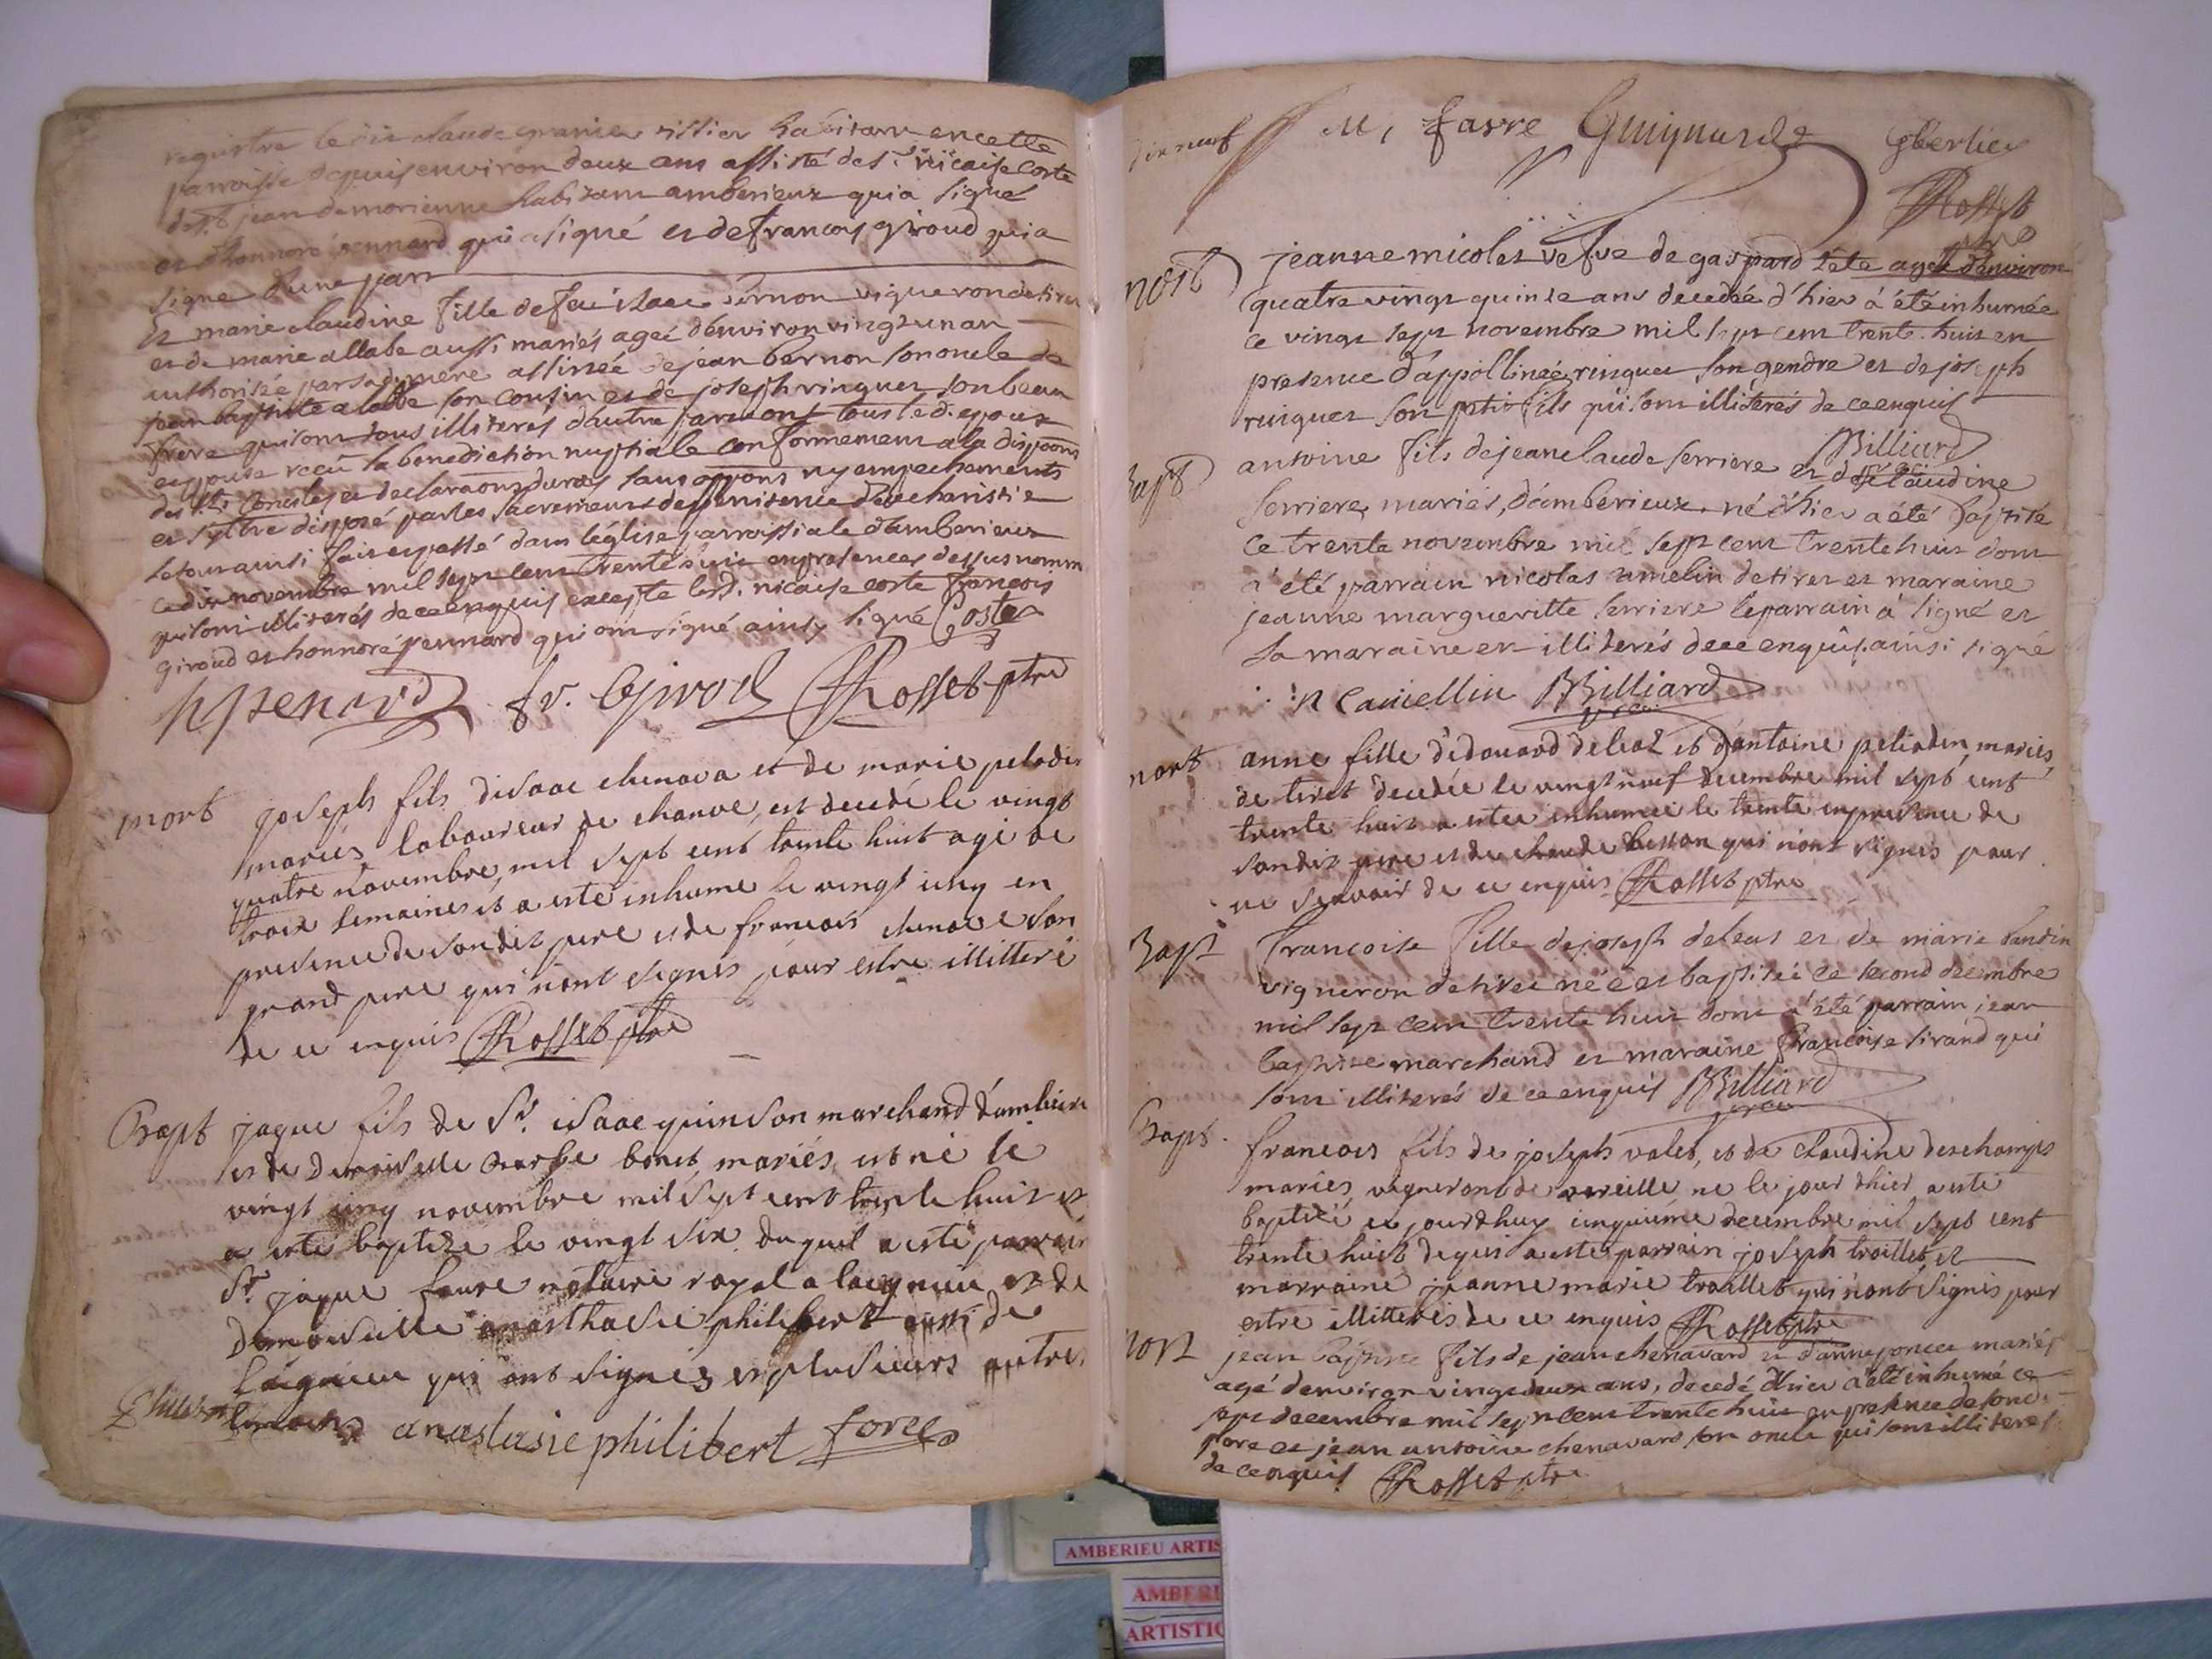 registre led. claude granier tissier habitant en cette
parroisse depuis environ deux ans assisté de sr. nicaise coste
de st jean de morienne habitant amberieux qui a signé
et d'honnoré pennard qui a signé et de francois giroud qui a
signé d'une part
et marie claudine fille de feu isaac bernon vigneron de tiret
et de marie allabe aussi mariés ageé d'environ vingt un an
authorisée par sad. mere assistée de jean bernon son oncle de
jean baptiste alabbe son cousin et de joseph vinguet son beau
frere qui sont tous illiterés d'autre part ont tous led. epoux
epouse reçu la benediction nuptiale conformement a la dispoons
des sts. conciles et declaraons du roy sans oppons ny empechements
et s'ettre disposé par les sacrements de penitence d'eucharistie
le tout ainsi fait et passé dans l'église parroissiale d'amberieux
ce dix novembre mil sept cent trente huit en presences dessus nomm
qui sont illiterés de ce enquis excepte led. nicaise coste francois
giroud et honnoré pennard qui ont signé ainsy signé Coste
h penard fr. Girod Rosset ptre
mort joseph fils d'isaac chenava et de marie peladin
mariés laboureur de chauve, est decedé le vingt
quatre novembre, mil sept cent trente huit agé de
trois semaines et a esté inhumé le vingt cinq en
presence de son dit pere et de francois chenave son
grand pere qui n'ont signés pour estre illitteré
de ce enquis Rosset ptre
Bapt jaque fils de Sr. isaac quinson marchand d'amberie
et de demoiselle bonet mariés est né le
vingt cinq novembre mil sept cent trente huit et
a esté baptizé le vingt six duquel a esté parrain
Sr. jaque faure notaire royal a lagnieu et de
demoiselle anasthasie philibert aussi de
laignieu qui ont signés et plusieurs autres
anastasie philibert
M, favre Guignard Gberlie
Rosset
mort jeanne micolet vefve de gaspard tété ageé d'environ
quatre vingt quinze ans decedée d'hier a été inhumée
ce vingt sept novembre mil sept cent trente huit en
presence d'appollineé rinquet son gendre et de joseph
rinquet son petit fils qui sont illiterés de ce enquis
Billiard
bapt antoine fils de jean claude serriere et de claudine
serriere, mariés, d'amberieux. né d'hier a été baptisé
ce trente novembre mil sept cent trente huit dont
a été parrain nicolas amelin de tiret et maraine
jeanne margueritte serriere le parrain a signé et
la maraine est illiterés de ce enquis. ainsi signé
n Camellin Billiard
mort anne fille d'edouard deleaz et d'antoine peliadin, mariés,
de tiret decedée le vingt neuf decembre mil sept cent
trente huit a estée inhumée le trente en presence de
son dit pere et de claude besson qui n'ont signés pour
ne scavoir de ce enquis Rosset ptre
Bapt francoise fille de joseph deleas et de marie bandin
vigneron de tiret née et baptisée ce second decembre
mil sept cent trente huit dont a été parrain jean
baptiste marchand et maraine francoise sirand qui
sont illiterés de ce enquis Billiard
Bapt. francois fils de joseph valet, et de claudine deschamps
mariés vignerons de vareille né le jour d'hier a esté
baptizé ce jourdhuy cinquieme decembre mil sept cent
trente huit de qui a esté parrain joseph troillet et
marraine jeanne marie troillet qui n'ont signés pour
estre illitterés de ce enquis Rosset ptre
mort jean baptiste fils de jean chenavard et d'anne poncet mariés
agé d'environ vingt deux ans, decedé d'hier a été inhumé ce
sept decembre mil sept cent trente huit en presence de son d.
pere et jean antoine chenavard son oncle qui sont illiterés
de ce enquis Rosset ptre
AMBERIEU ARTIS
AMBERI
ARTISTIQ